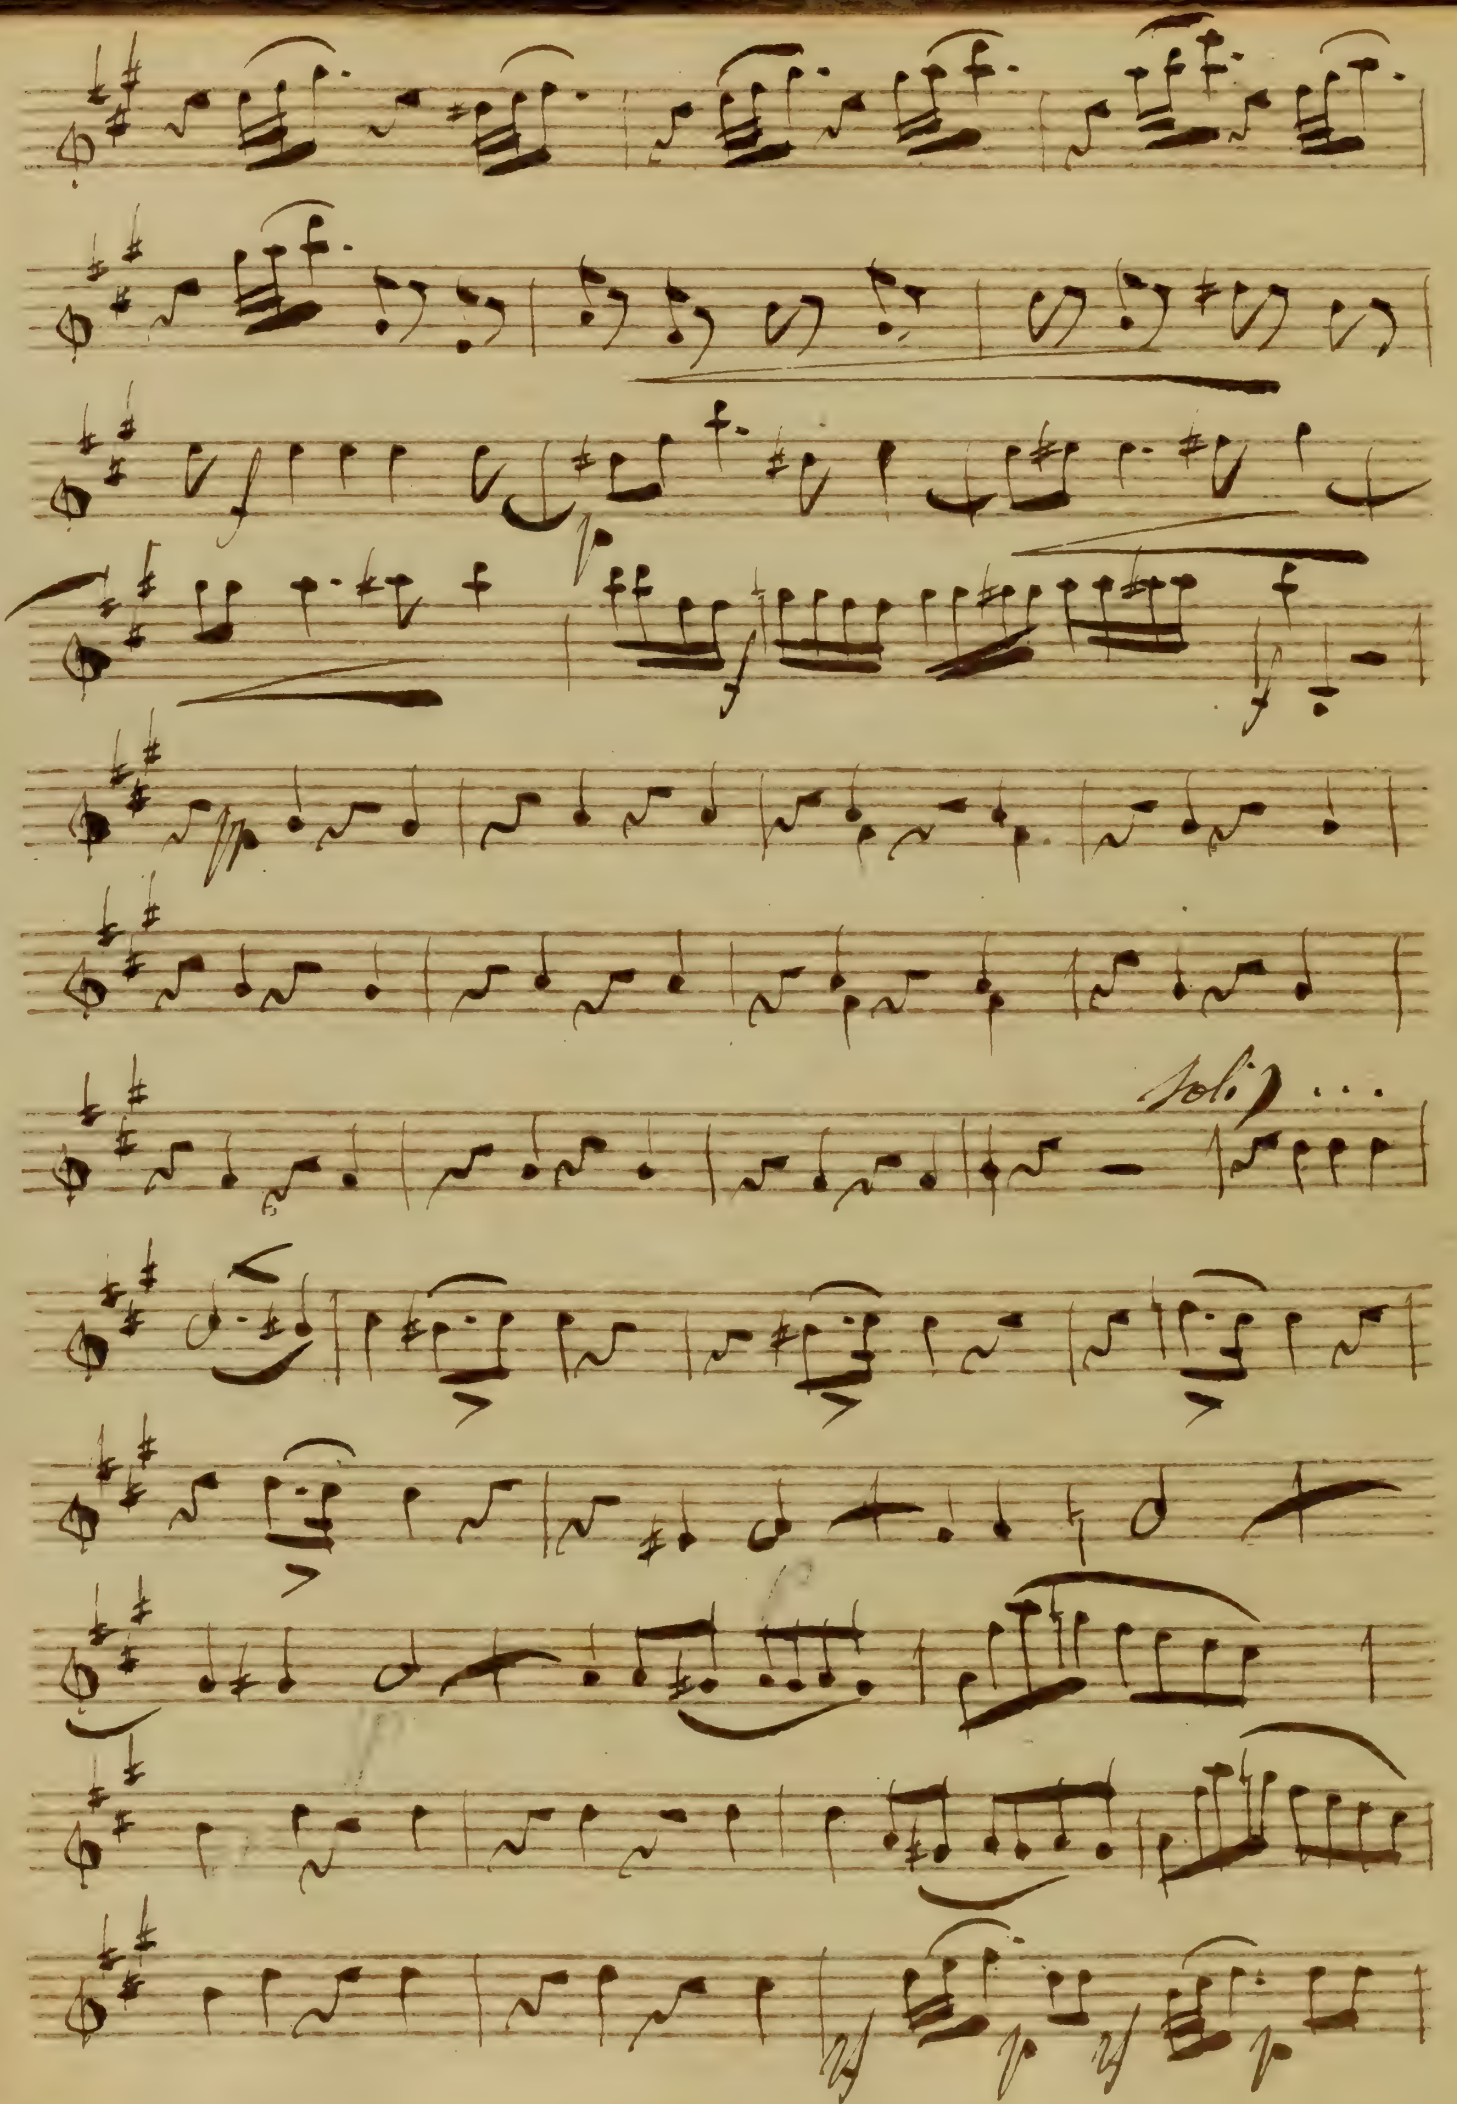 f
p
f f
pp
Soli . . .
p
p
rf p rf p